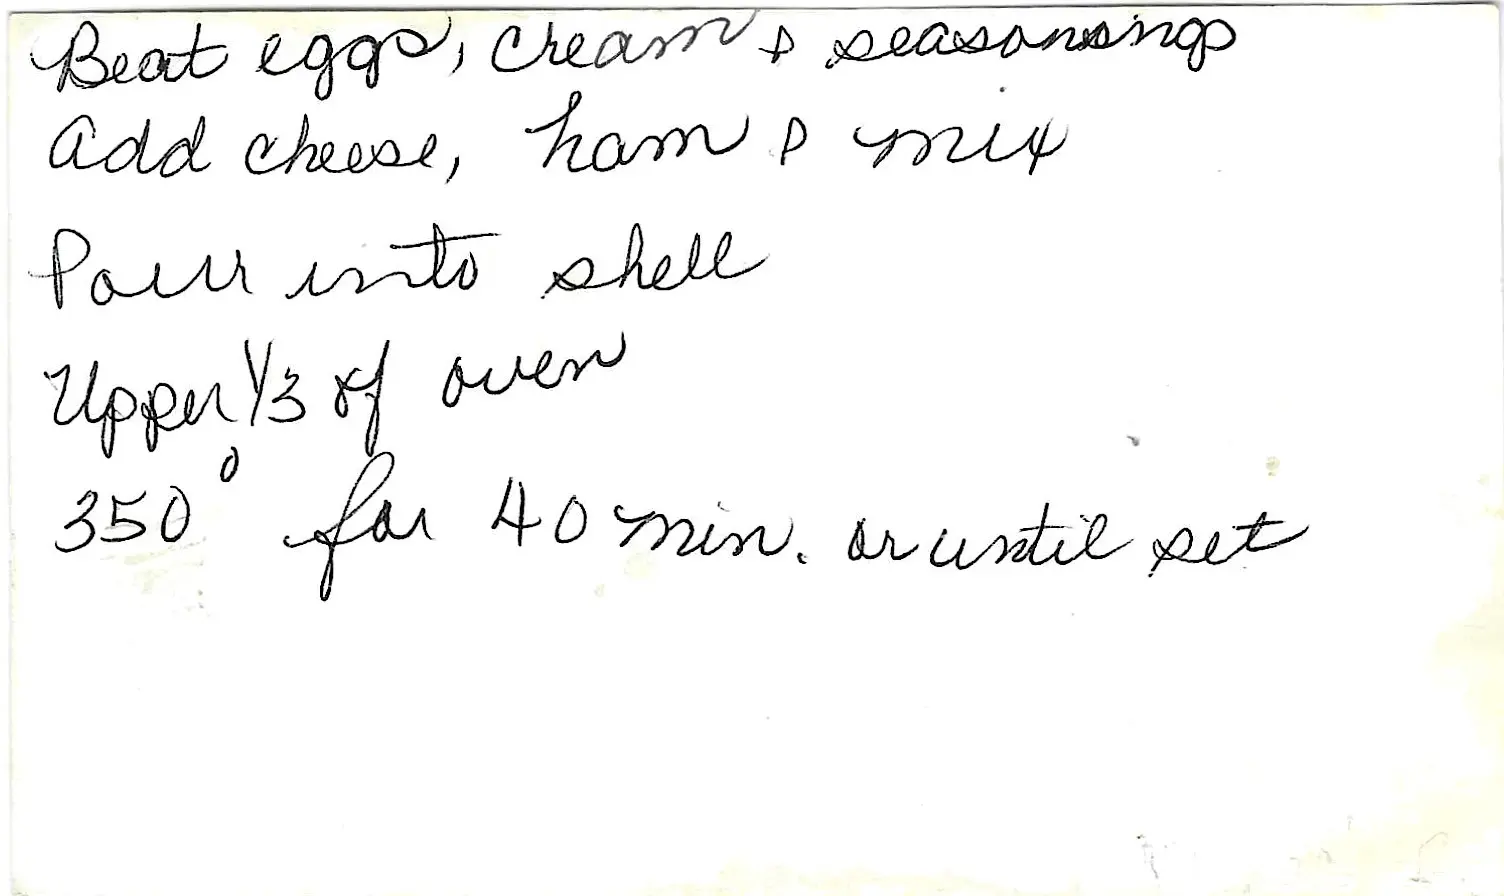 Beat eggs, cream & seasonings
Add cheese, ham & mix
Pour into shell
Upper 1/3 of oven
350° for 40 min. or until set